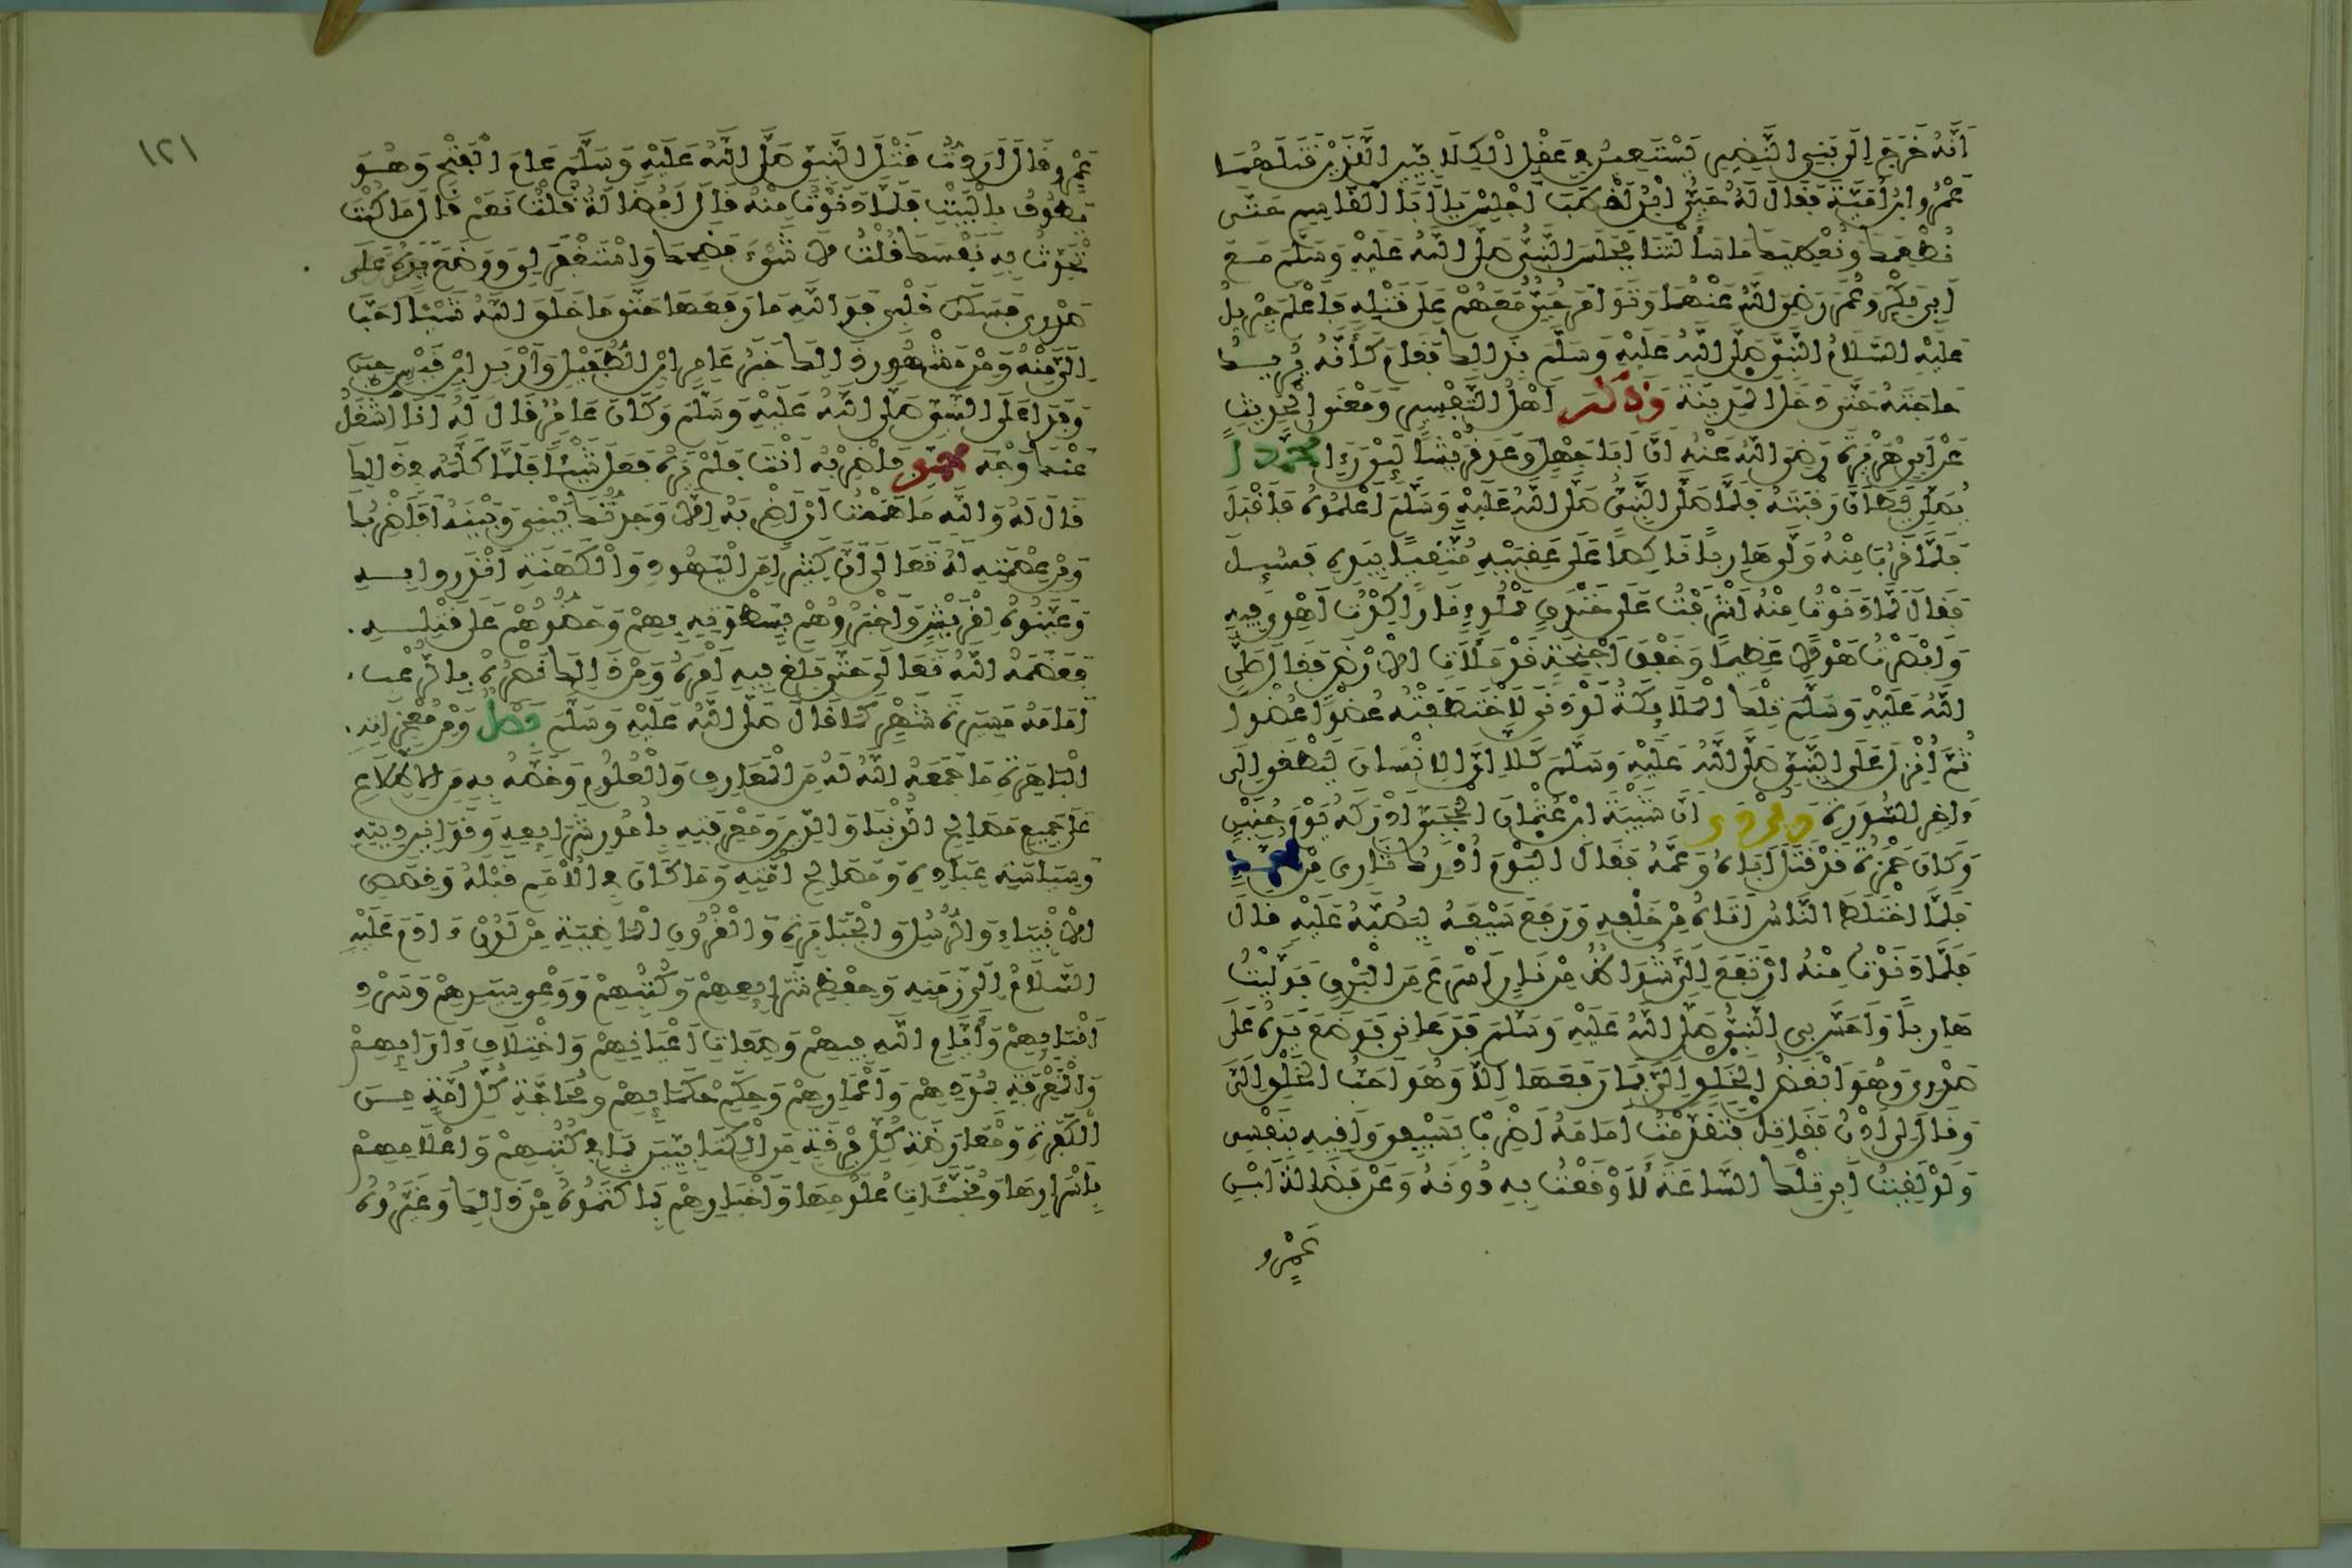 أَنَّهُ خَرَجَ إِلَى بَنِي النَّضِيرِ يَسْتَعِينُ فِي عَقْلِ الْكِلَابِيَّيْنِ الَّذَيْنِ قَتَلَهُمَا
عَمْرُو ابْنُ أُمَيَّةَ فَقَالَ لَهُ حُيَيُّ ابْنُ أَخْطَبَ اجْلِسْ يَا أَبَا الْقَاسِمِ حَتَّى
نُطْعِمَكَ وَنُعْطِيَكَ مَا سَأَلْتَنَا فَجَلَسَ النَّبِيُّ صَلَّى اللَّهُ عَلَيْهِ وَسَلَّمَ مَعَ
أَبِي بَكْرٍ وَعُمَرَ رَضِيَ اللَّهُ عَنْهُمَا وَتَوَامَرَ حُيَيٌّ مَعَهُمْ عَلَى قَتْلِهِ فَأَعْلَمَ جِبْرِيلُ
عَلَيْهِ السَّلَامُ النَّبِيَّ صَلَّى اللَّهُ عَلَيْهِ وَسَلَّمَ بِذَلِكَ فَقَامَ كَأَنَّهُ يُرِيدُ
حَاجَتَهُ حَتَّى دَخَلَ الْمَدِينَةَ وَذَكَرَ أَهْلُ التَّفْسِيرِ وَمَعْنَى الْحَدِيثِ
عَنْ أَبِي هُرَيْرَةَ رَضِيَ اللَّهُ عَنْهُ أَنَّ أَبَا جَهْلٍ وَعَدَ قُرَيْشًا لَئِنْ رَءَا مُحَمَّدًا
يُصَلِّي لَيَطَأَنَّ رَقَبَتَهُ فَلَمَّا صَلَّى النَّبِيُّ صَلَّى اللَّهُ عَلَيْهِ وَسَلَّمَ أَعْلَمُوهُ فَأَقْبَلَ
فَلَمَّا قَرُبَ مِنْهُ وَلَّى هَارِبًا نَاكِصًا عَلَى عَقِبَيْهِ مُتَّقِيًا بِيَدِهِ فَسُئِلَ
فَقَالَ لَمَّا دَنَوْتُ مِنْهُ أَشْرَفْتُ عَلَى خَنْدَقٍ مَمْلُوءٍ نَارًا كِدْتُ أَهْوِي فِيهِ
وَأَبْصَرْتُ هَوْلًا عَظِيمًا وَخَفْقَ أَجْنِحَةٍ قَدْ مَلَأَتِ الْأَرْضَ فَقَالَ صَلَّى
اللَّهُ عَلَيْهِ وَسَلَّمَ تِلْكَ الْمَلَائِكَةُ لَوْ دَنَى لَاخْتَطَفَتْهُ عُضْوًا عُضْوًا
ثُمَّ أُنْزِلَ عَلَى النَّبِيِّ صَلَّى اللَّهُ عَلَيْهِ وَسَلَّمَ كَلَّا إِنَّ الْإِنْسَانَ لَيَطْغَى إِلَى
ءَاخِرِ السُّورَةِ وَيُرْوَى أَنَّ شَيْبَةَ ابْنَ عُثْمَانَ الْحَجَبِيَّ أَدْرَكَهُ يَوْمَ حُنَيْنٍ
وَكَانَ حَمْزَةُ قَدْ قَتَلَ أَبَاهُ وَعَمَّهُ فَقَالَ الْيَوْمَ أُدْرِكُ ثَارِي مِنْ مُحَمَّدٍ
فَلَمَّا اخْتَلَطَ النَّاسُ أَتَاهُ مِنْ خَلْفِهِ وَرَفَعَ سَيْفَهُ لِيَصُبَّهُ عَلَيْهِ قَالَ
فَلَمَّا دَنَوْتُ مِنْهُ ارْتَفَعَ إِلَيَّ شُوَاظٌ مِنْ نَارٍ أَسْرَعُ مِنَ الْبَرْقِ فَوَلَّيْتُ
هَارِبًا وَأَحَسَّ بِي النَّبِيُّ صَلَّى اللَّهُ عَلَيْهِ وَسَلَّمَ فَدَعَانِي فَوَضَعَ يَدَهُ عَلَى
صَدْرِي وَهُوَ أَبْغَضُ الْخَلْقِ إِلَيَّ فَمَا رَفَعَهَا إِلَّا وَهُوَ أَحَبُّ الْخَلْقِ إِلَيَّ
وَقَالَ لِي ادْنُ فَقَاتِلْ فَتَقَدَّمْتُ أَمَامَهُ أَضْرِبُ بِسَيْفِي وَأَقِيهِ بِنَفْسِي
وَلَوْ لَقِيتُ أَبِي تِلْكَ السَّاعَةَ لَأَوْقَعْتُ بِهِ دُونَهُ وَعَنْ فَضَالَةَ ابْنِ
عَمْرٍو
١٢١
عَمْرٍو قَالَ أَرَدْتُ قَتْلَ النَّبِيِّ صَلَّى اللَّهُ عَلَيْهِ وَسَلَّمَ عَامَ الْفَتْحِ وَهُوَ
يَطُوفُ بِالْبَيْتِ فَلَمَّا دَنَوْتُ مِنْهُ قَالَ أَفَضَالَةُ قُلْتُ نَعَمْ قَالَ مَا كُنْتَ
تُحَدِّثُ بِهِ نَفْسَكَ قُلْتُ لَا شَيْءَ فَضَحِكَ وَاسْتَغْفَرَ لِي وَوَضَعَ يَدَهُ عَلَى
صَدْرِي فَسَكَنَ قَلْبِي فَوَاللَّهِ مَا رَفَعَهَا حَتَّى مَا خَلَقَ اللَّهُ شَيْئًا أَحَبَّ
إِلَيَّ مِنْهُ وَمِنْ مَشْهُورِ ذَلِكَ خَبَرُ عَامِرِ ابْنِ الطُّفَيْلِ وَأَرْبَدِ ابْنِ قَيْسٍ حِينَ
وَفَدَا عَلَى النَّبِيِّ صَلَّى اللَّهُ عَلَيْهِ وَسَلَّمَ وَكَانَ عَامِرٌ قَالَ لَهُ أَنَا أَشْغَلُ
عَنْكَ وَجْهَ مُحَمَّدٍ فَاضْرِبْهُ أَنْتَ فَلَمْ يَرَهُ فَعَلَ شَيْئًا فَلَمَّا كَلَّمَهُ فِي ذَلِكَ
قَالَ لَهُ وَاللَّهِ مَا هَمَمْتُ أَنْ أَضْرِبَهُ إِلَّا وَجَدْتُكَ بَيْنِي وَبَيْنَهُ أَفَأَضْرِبُكَ
وَمِنْ عِصْمَتِهِ لَهُ تَعَالَى أَنَّ كَثِيرًا مِنَ الْيَهُودِ وَالْكَهَنَةِ أَنْذَرُوا بِهِ
وَعَيَّنُوهُ لِقُرَيْشٍ وَأَخْبَرُوهُمْ بِسَطْوَتِهِ بِهِمْ وَحَضُّوهُمْ عَلَى قَتْلِهِ
فَعَصَمَهُ اللَّهُ تَعَالَى حَتَّى بَلَغَ فِيهِ أَمْرَهُ وَمِنْ ذَلِكَ نَصْرُهُ بِالرُّعْبِ
أَمَامَهُ مَسِيرَةَ شَهْرٍ كَمَا قَالَ صَلَّى اللَّهُ عَلَيْهِ وَسَلَّمَ فَصْلٌ وَمِنْ مُعْجِزَاتِهِ
الْبَاهِرَةِ مَا جَمَعَهُ اللَّهُ لَهُ مِنَ الْمَعَارِفِ وَالْعُلُومِ وَخَصَّهُ بِهِ مِنَ الْإِطِّلَاعِ
عَلَى جَمِيعِ مَصَالِحِ الدُّنْيَا وَالدِّينِ وَمَعْرِفَتِهِ بِأُمُورِ شَرَائِعِهِ وَقَوَانِينِ دِينِهِ
وَسِيَاسَةِ عِبَادِهِ وَمَصَالِحِ أُمَّتِهِ وَمَا كَانَ فِي الْأُمَمِ قَبْلَهُ وَقِصَصِ
الْأَنْبِيَاءِ وَالرُّسُلِ وَالْجَبَابِرَةِ وَالْقُرُونِ الْمَاضِيَةِ مِنْ لَدُنْ ءَادَمَ عَلَيْهِ
السَّلَامُ إِلَى زَمَنِهِ وَحِفْظِ شَرَائِعِهِمْ وَكُتُبِهِمْ وَوَعْيِ سِيَرِهِمْ وَسَرْدِ
أَنْبَائِهِمْ وَأَيَّامِ اللَّهِ فِيهِمْ وَصِفَاتِ أَعْيَانِهِمْ وَاخْتِلَافِ ءَارَائِهِمْ
وَالْمَعْرِفَةِ بِمُدَدِهِمْ وَأَعْمَارِهِمْ وَحِكَمِ حُكَمَائِهِمْ وَمُحَاجَّةِ كُلِّ أُمَّةٍ مِنَ
الْكَفَرَةِ وَمُعَارَضَةِ كُلِّ فِرْقَةٍ مِنَ الْكِتَابِيِّينَ بِمَا فِي كُتُبِهِمْ وَإِعْلَامِهِمْ
بِأَسْرَارِهَا وَمُخَبَّئَاتِ عُلُومِهَا وَأَخْبَارِهِمْ بِمَا كَتَمُوهُ مِنْ ذَلِكَ وَغَيَّرُوهُ